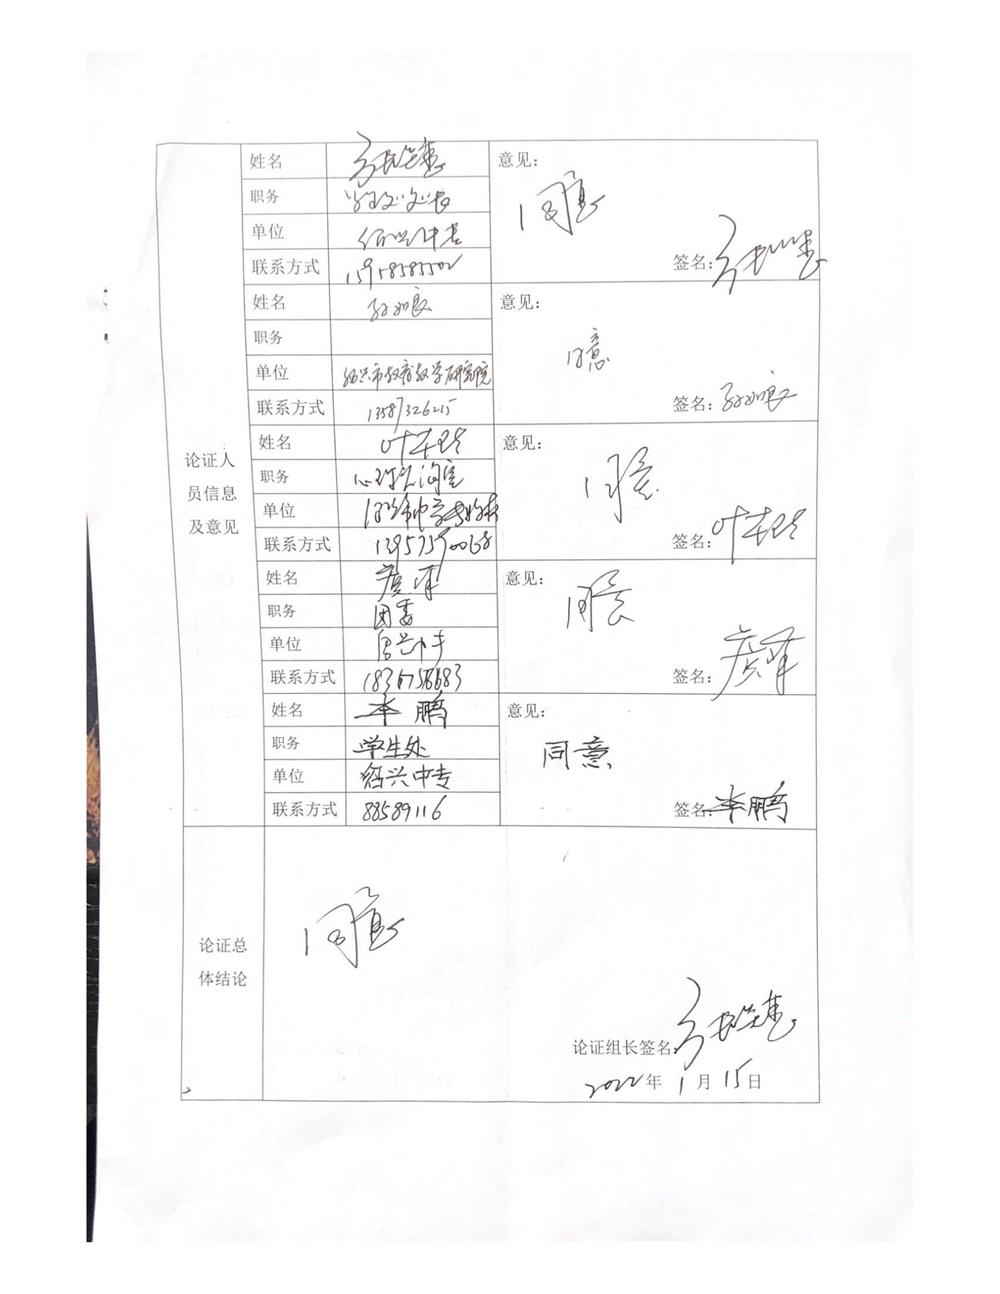 姓名
职务
单位
联系方式 15958585502
意见：
同意
签名：
姓名 孙如良
职务
单位 绍兴市教育教学研究院
联系方式 13587326215
意见：
同意
签名：孙如良
论证人
员信息
及意见
姓名
职务
单位
联系方式 13957590068
意见：
同意
签名：
姓名
职务 团委
单位 绍兴中专
联系方式 18367586683
意见：
同意
签名：
姓名 李鹏
职务 学生处
单位 绍兴中专
联系方式 88589116
意见：
同意
签名：李鹏
论证总
体结论
同意
论证组长签名：
2022年1月15日